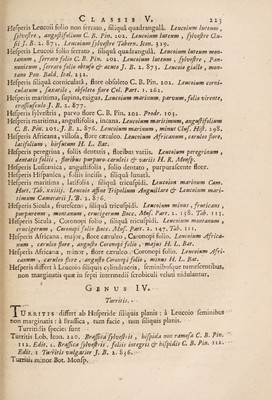 CLASSIS V. 223
Hesperis Leucoii folio non serrato, siliquâ quadrangulâ. Leucoium luteum,
sylvestre, angustifolium C. B. Pin. 202. Leucoium sylvestre Clu-
sii J. B. 2. 871. Leucoium sylvestre Tabern. Icon. 319.
Hesperis Leucoii folio serrato, siliquâ quadrangulâ. Leucoium luteum mon-
tanum, serrato folio C. B. Pin. 202. Leucoium luteum, sylvestre, Pan-
nonicum, serrato folio obtuso & acuto J. B. 2. 873. Leucoio giallo, mon-
tano Pon. Bald. Ital.
Hesperis siliquâ corniculatâ, flore obsoleto C. B. Pin. 202. Leucoium corni-
culatum, saxatile, obsoleto flore Col. Part. 1. 262.
Hesperis maritima, supina, exigua. Leucoium marinum, parvum, folio virente,
crassiusculo J. B. 2. 877.
Hesperis sylvestris, parvo flore C. B. Pin. 202. Prodr. 103.
Hesperis maritima, angustifolia, incana. Leucoium maritimum, angustifolium
C. B. Pin. 201. J. B. 2. 876. Leucoium marinum, minus Clus. Hist. 298.
Hesperis Africana, villosa, flore cæruleo. Leucoium Africanum, cæruleo flore,
Latifolium, hirsutum H. L. Bat.
Hesperis peregrina, foliis dentatis, floribus variis. Leucoium peregrinum,
dentatis foliis, floribus purpuro-cæruleis & variis H. R. Monsp.
Hesperis Lusitanica, angustifolia, folio dentato, purpurascente flore.
Hesperis Hispanica, foliis incisis, siliquâ lunatâ.
Hesperis maritima, latifolia, siliquâ tricuspidi. Leucoium marinum Cam.
Hort. Tab. Leucoio affine Tripolium Anguillaræ & Leucoium mari-
timum Camerarii J. B. 2. 876.
Hesperis Sicula, frutescens, siliquâ tricuspidi. Leucoium minus, fruticans,
purpureum, montanum, crucigerum Bocc. Mus. Part. 2. 158. Tab. 113.
Hesperis Sicula, Coronopi folio, siliquâ tricuspidi. Leucoium montanum,
crucigerum, Coronopi folio Bocc. Mus. Part. 2. 147. Tab. 111.
Hesperis Africana, major, flore cæruleo, Coronopi folio. Leucoium Africa-
num, cæruleo flore, angusto Coronopi folio, majus H. L. Bat.
Hesperis Africana, minor, flore cæruleo, Coronopi folio. Leucoium Afri-
canum, cæruleo flore, angusto Coronopi folio, minus H. L. Bat.
Hesperis differt à Leucoio siliquis cylindraceis, seminibusque tumescentibus,
non marginatis quæ in septi intermedii scrobiculi veluti nidulantur.
GENUS IV.
Turritis.
TURRITIS differt ab Hesperide siliquis planis; à Leucoio seminibus
non marginatis: à Brassica, tum facie, tum siliquis planis.
Turritidis species sunt
Turritis Lob. Icon. 220. Brassica sylvestris, hispida non ramosa C. B. Pin.
112. Edit. 1. Brassica sylvestris, foliis integris & hispidis C. B. Pin. 112.
Edit. 2 Turritis vulgatior J. B. 2. 836.
Turritis minor Bot. Monsp.